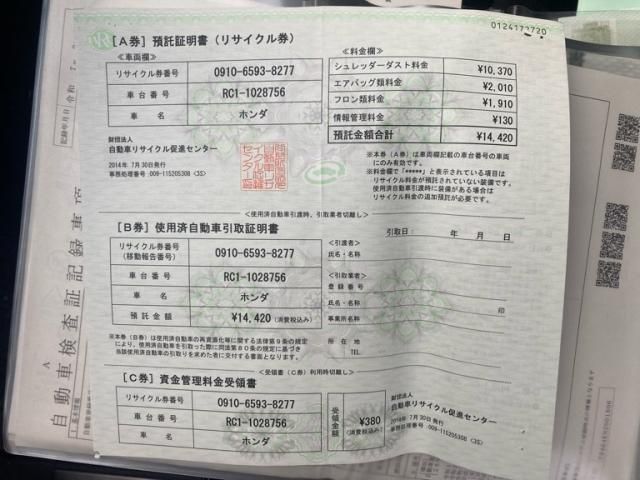 0124172720
[A券] 預託証明書（リサイクル券）
＜車両欄＞
リサイクル券番号 0910-6593-8277
車台番号 RC1-1028756
車名 ホンダ
＜料金欄＞
シュレッダーダスト料金 ¥10,370
エアバッグ類料金 ¥2,010
フロン類料金 ¥1,910
情報管理料金 ¥130
預託金額合計 ¥14,420
財団法人
自動車リサイクル促進センター
2014年 7月30日発行
事務処理番号:009-115205308 〈3S〉
※本券（A券）は車両欄記載の車台番号の車両
にのみ有効です。
※料金欄で「*****」と表示されている項目は
リサイクル料金が預託されていない装備です。
使用済自動車引渡時に装備がある場合は
リサイクル料金の追加預託が必要です。
＜使用済自動車引渡時、引取業者切離し＞
[B券] 使用済自動車引取証明書
引取日： 年 月 日
リサイクル券番号
(移動報告番号) 0910-6593-8277
車台番号 RC1-1028756
車名 ホンダ
預託金額 ¥14,420 (消費税込み)
＜引渡者＞
氏名・名称
＜引取業者＞
登録番号
氏名・名称 印
事業所名称
所在地
TEL.
※本券（B券）は使用済自動車の再資源化等に関する法律第９条の規定
により、使用済自動車を引取った際に同法第８０条の規定に基づき
当該使用済自動車の引取りを求めた者に交付する書面となります。
＜受領書（C券）利用時切離し＞
[C券] 資金管理料金受領書
リサイクル券番号 0910-6593-8277
車台番号 RC1-1028756
車名 ホンダ
受領金額 ¥380
(消費税込み)
財団法人
自動車リサイクル促進センター
2014年 7月30日発行
事務処理番号:009-115205308 〈3S〉
自動車検査証記録事項